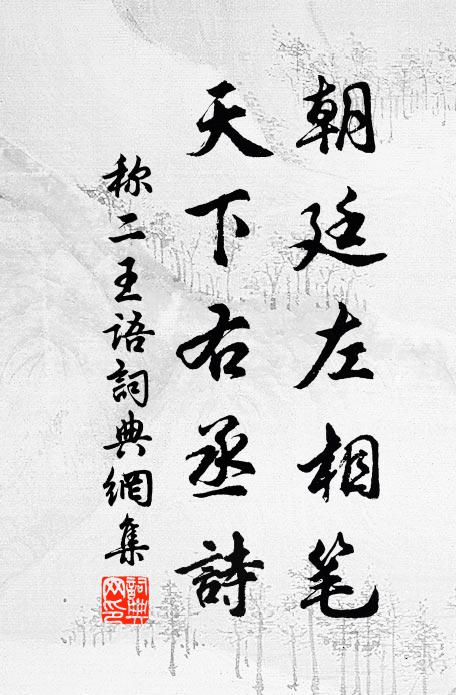 朝廷左相笔
天下右丞詩
称二王語詞典網集
詞典網印